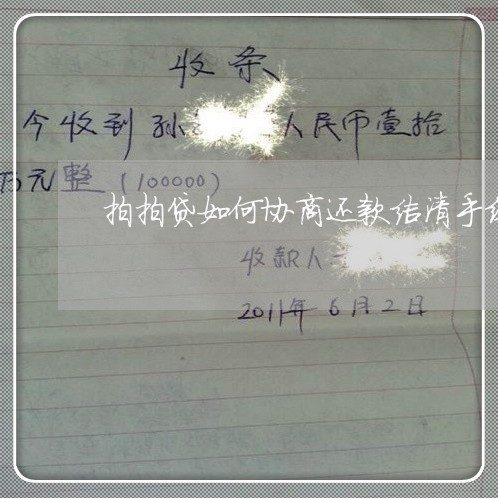 收条
今收到孙 人民币壹拾
万元整(100000)
拍拍贷如何协商还款结清手
收款人
2011年6月2日